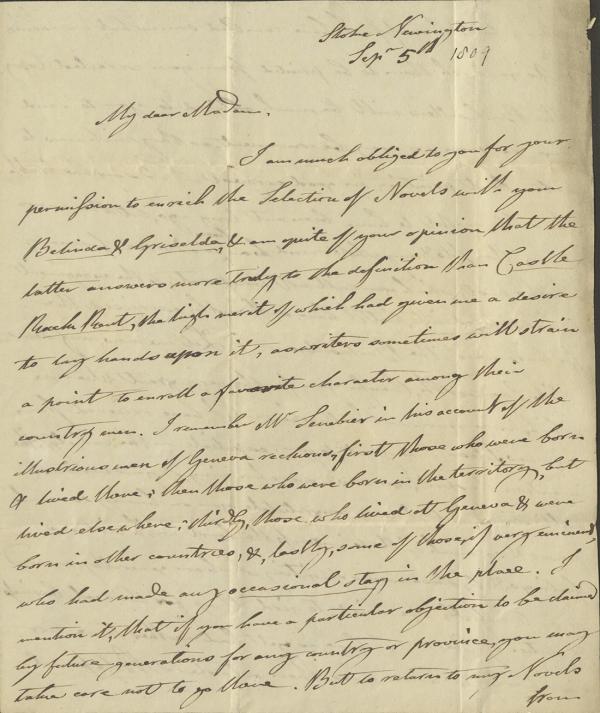 Stoke Newington
Sepr 5th 1809
My dear Madam,
I am much obliged to you for your
permission to enrich the Selection of Novels with your
Belinda & Griselda, & am quite of your opinion that the
latter answers more truly to the definition than Castle
Rack Rent, the high merit of which had given me a desire
to lay hands upon it, as writers sometimes will strain
a point to enroll a favorite character among their
countrymen. I remember Mr Senebier in his account of the
illustrious men of Geneva reckons, first those who were born
& lived there; then those who were born in the territory, but
lived elsewhere; thirdly, those who lived at Geneva & were
born in other countries, &, lastly, some of those, if very eminent,
who had made any occasional stay in the place. I
mention it, that if you have a particular objection to be claimed
by future generations for any country or province, you may
take care not to go there. But to return to my Novels
from